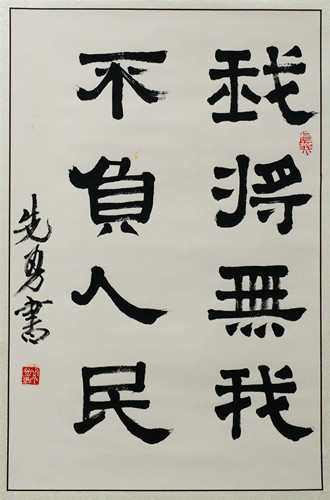 我將無我
不負人民
先勇書